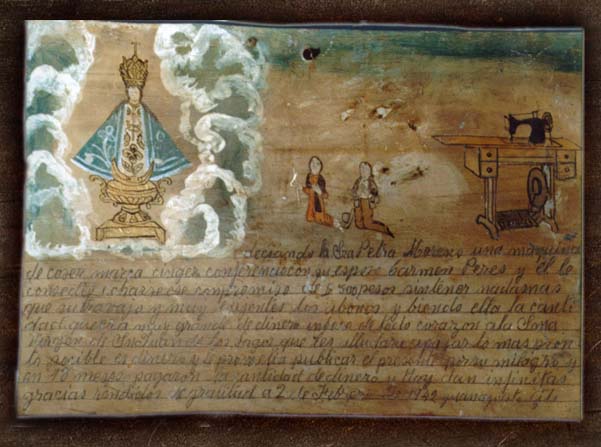 deceando la Sra Petra Moreno una maquina
de coser marca cinger conferencio con su esposo Carmen Peres y el le
consedio icharse ese compromiso de $ 500 pesos sin tener nadamas
que su trabajo y muy urgentes los abonos y biendo ella la canti
dad que era muy grande de dinero invoco de todo corazon a la Sma
Virgen de San Juan de los lagos que les alludara a pagar lo mas pron
to posible el dinero y le prometio publicar el presente por su milagro y
en 10 meses pagaron la cantidad de dinero y hoy dan infinitas
gracias rendidos de gratitud a 2 de Febrero de 19